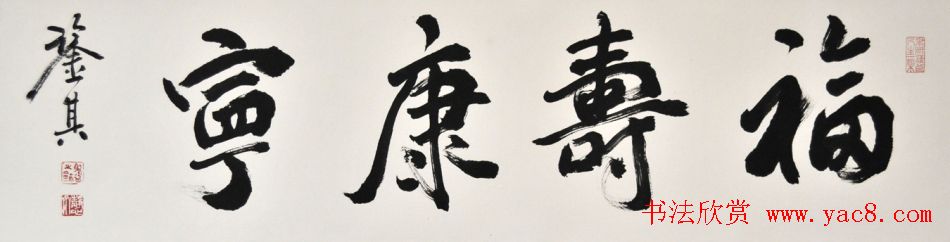 福壽康寧
其
书法欣赏 www.yac8.com